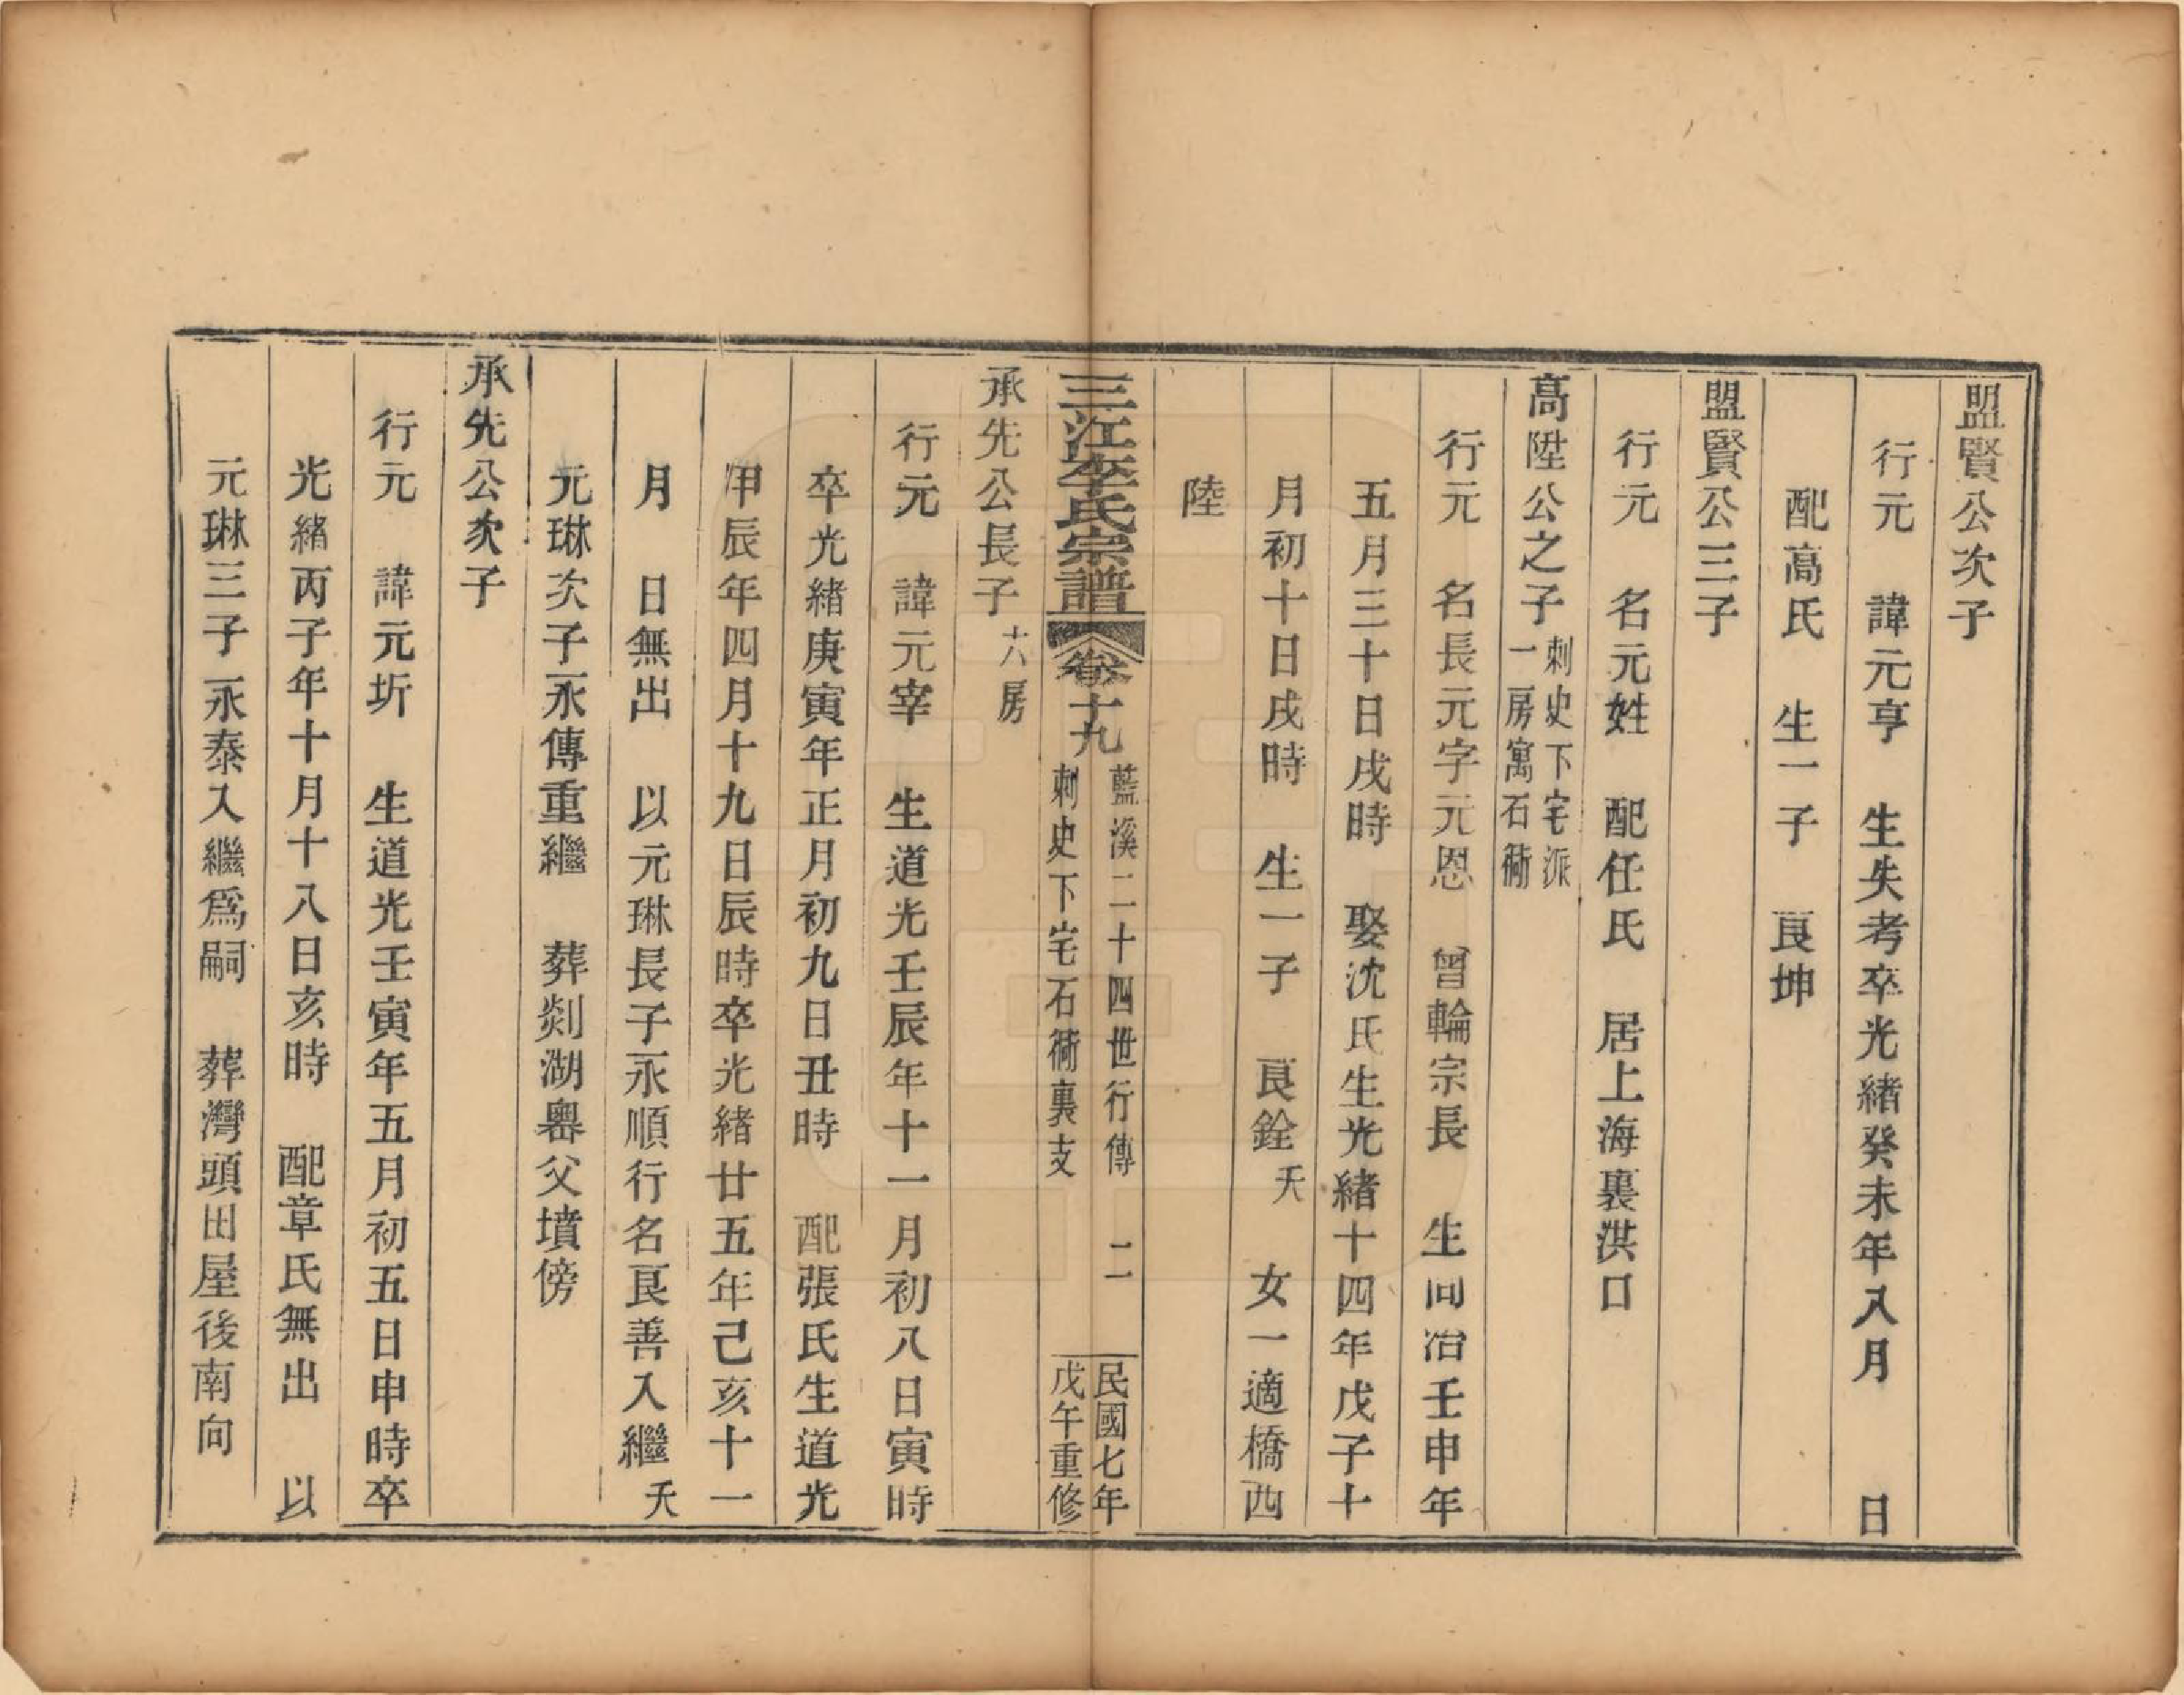 盟賢公次子
行元　諱元亨　生失考卒光緒癸未年八月　　日
配高氏　生一子　良坤
盟賢公三子
行元　名元姓　配任氏　居上海裏洪口
高陞公之子刺史下宅派一房寓石衕
行元　名長元字元恩　曾輪宗長　生同治壬申年
五月三十日戌時　娶沈氏生光緒十四年戊子十
月初十日戌時　生一子　良銓夭　女一適橋西
陸
三江李氏宗譜　卷十九　藍溪二十四世行傳　二　刺史下宅石衕裏支　民國七年戊午重修
承先公長子六房
行元　諱元宰　生道光壬辰年十一月初八日寅時
卒光緒庚寅年正月初九日丑時　配張氏生道光
甲辰年四月十九日辰時卒光緒廿五年己亥十一
月　日無出　以元琳長子永順行名良善入繼夭
元琳次子永傳重繼　葬剡湖嶴父墳傍
承先公次子
行元　諱元圻　生道光壬寅年五月初五日申時卒
光緒丙子年十月十八日亥時　配章氏無出　以
元琳三子永泰入繼爲嗣　葬灣頭田屋後南向